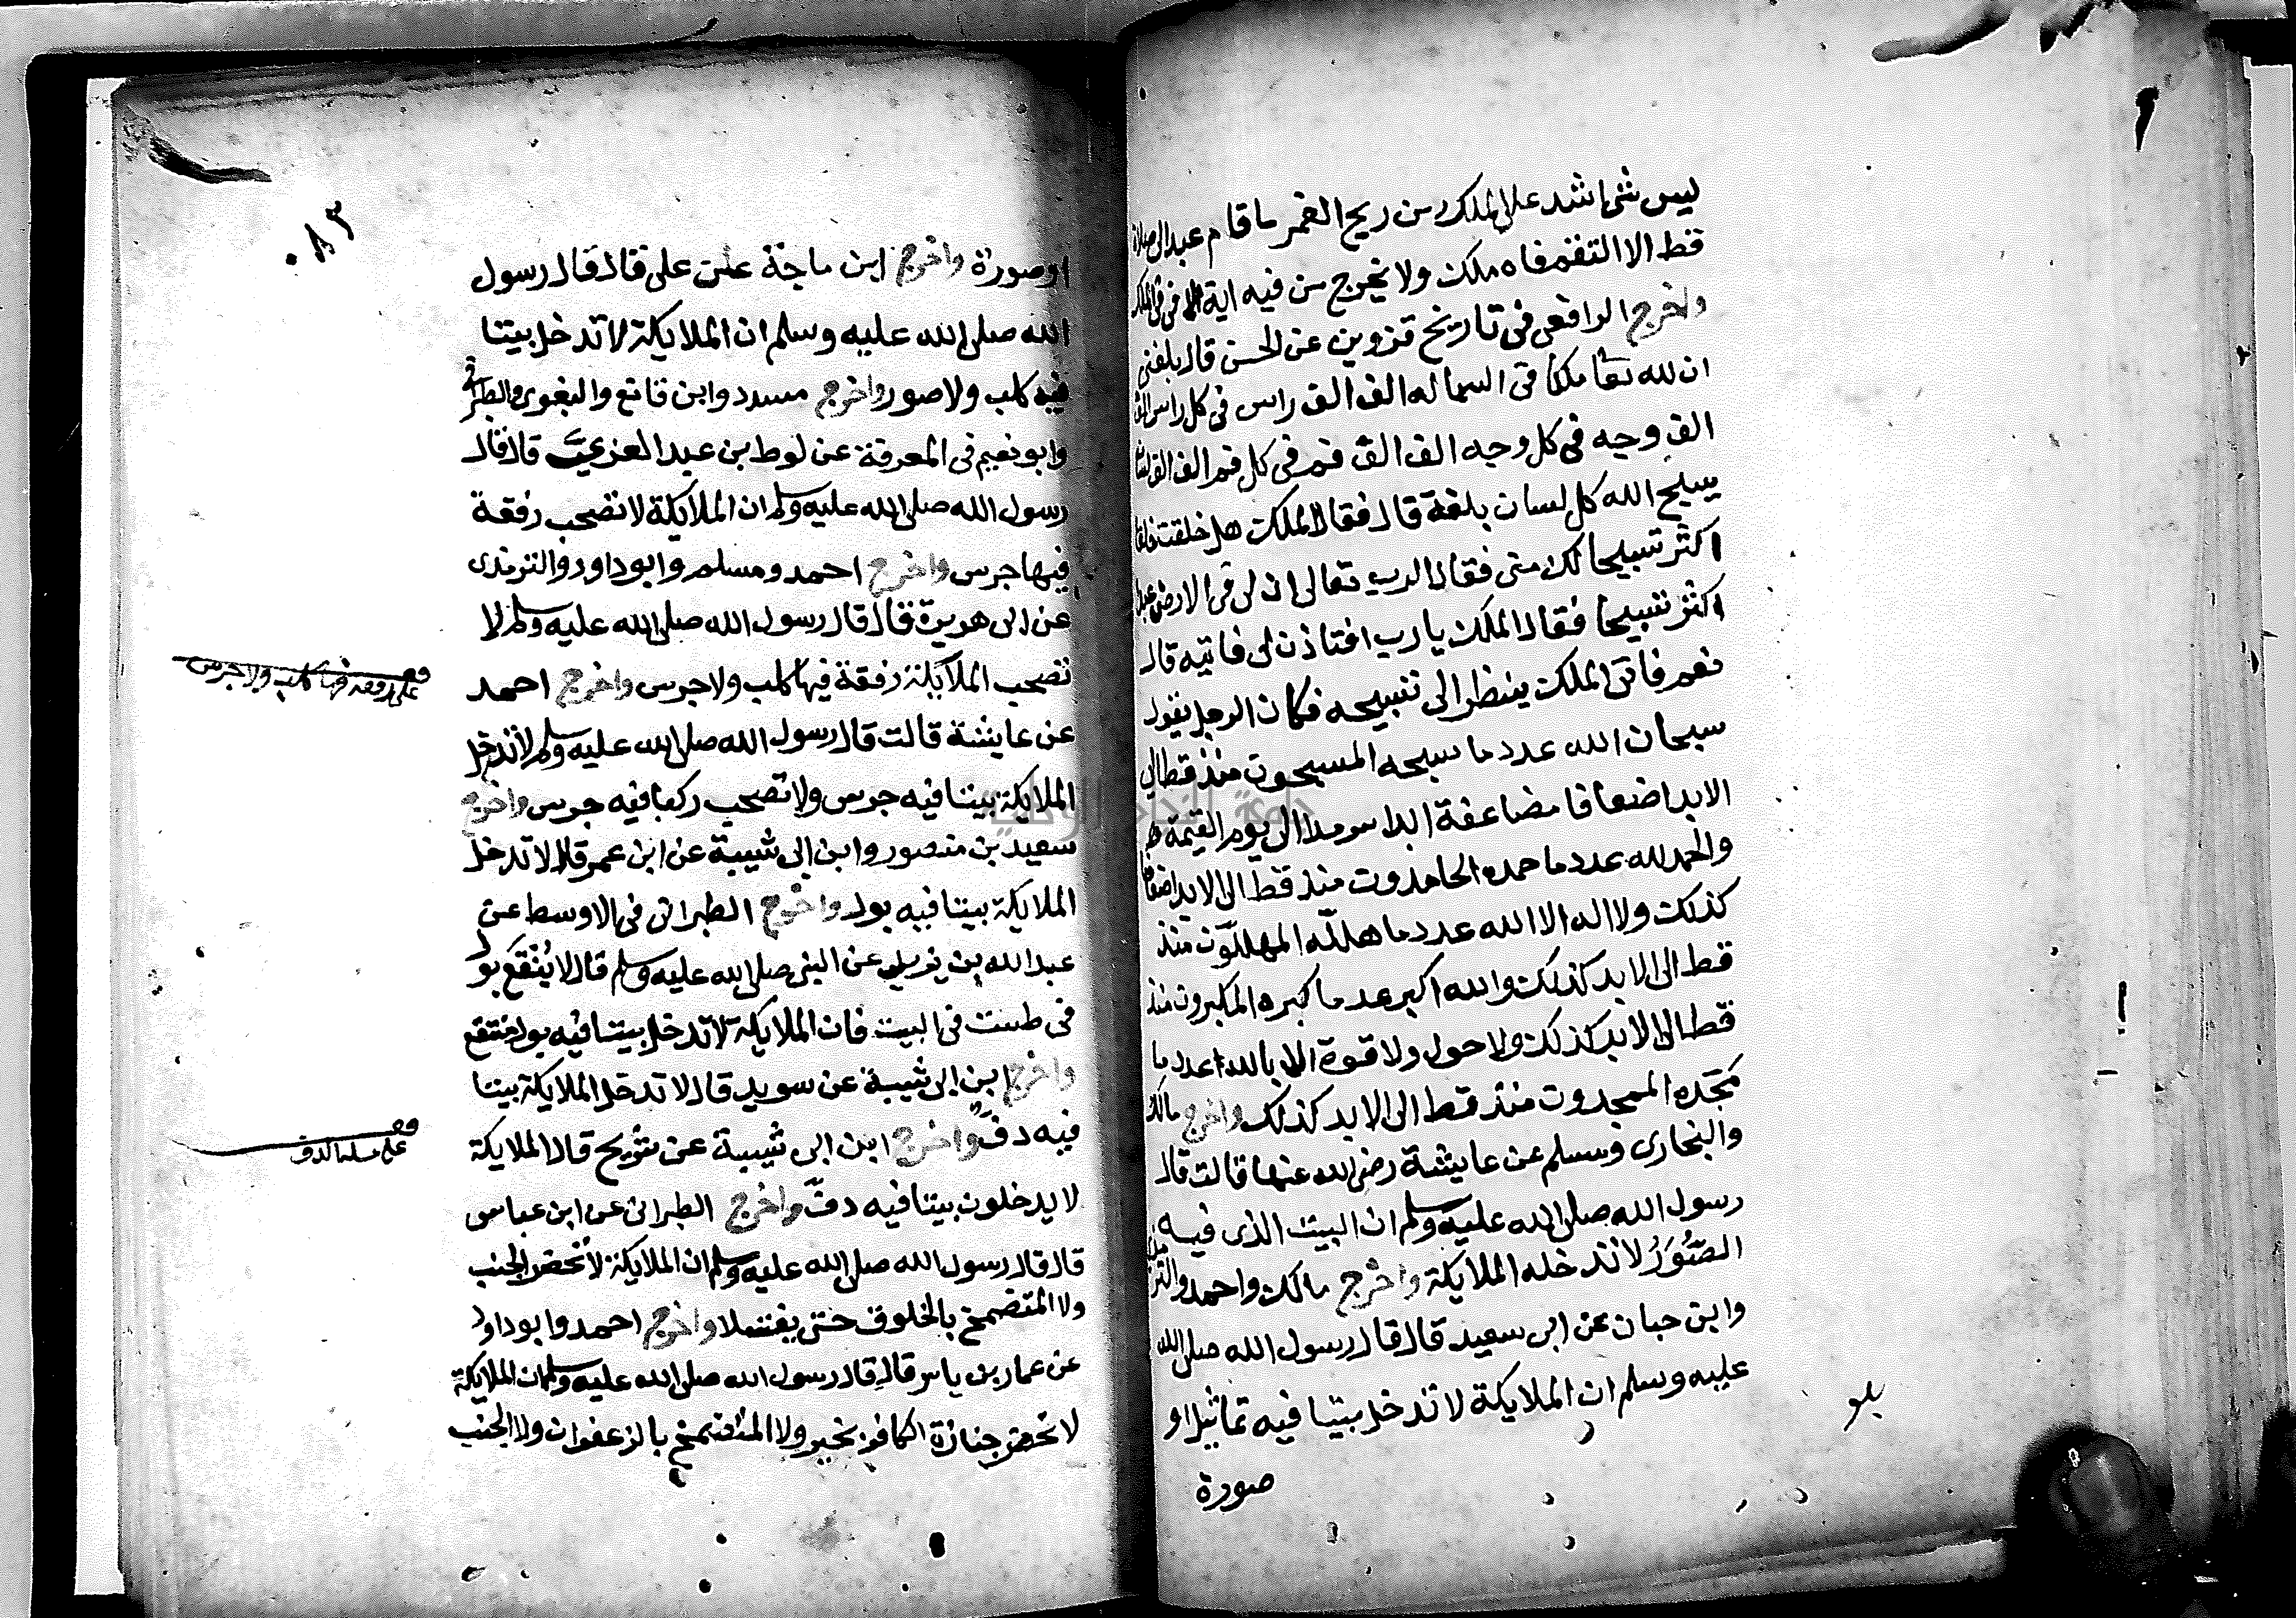 ليس شئ اشد على الملك من ريح الغمر ما قام عبد الى صلاة
قط الا التقم فاه ملك ولا يخرج من فيه اية الا في في الملك
واخرج الرافعي في تاريخ قزوين عن الحسن قال بلغني
ان لله تعا ملكا في السما له الف الف راس في كل راس الف
الف وجه في كل وجه الف الف فم في كل فم الف الف لسان
يسبح الله كل لسان بلغة قال فقال الملك هل خلقت خلقا
اكثر تسبيحا لك منى فقال الرب تعالى ان لى في الارض عبدا
اكثر تسبيحا فقال الملك يا رب افتاذن لى فاتيه قال
نعم فاتى الملك ينظر الى تسبيحه فكان الرجل يقول
سبحان الله عدد ما سبحه المسبحون منذ قط الى
الابد اضعافا مضاعفة ابدا سرمدا الى يوم القيمة
والحمد لله عدد ما حمده الحامدون منذ قط الى الابد اضعافا
كذلك ولا اله الا الله عدد ما هلله المهللون منذ
قط الى الابد كذلك والله اكبر عدد ما كبره المكبرون منذ
قط الى الابد كذلك ولا حول ولا قوة الا بالله عدد ما
مجده الممجدون منذ قط الى الابد كذلك واخرج مالك
والبخارى ومسلم عن عايشة رضى الله عنها قالت قال
رسول الله صلى الله عليه وسلم ان البيت الذى فيه
الصُّوَرُ لا تدخله الملايكة واخرج مالك واحمد والترمذى
وابن حبان عن ابى سعيد قال قال رسول الله صلى الله
عليه وسلم ان الملايكة لا تدخل بيتا فيه تماثيل او
صورة
٠٨٣
او صورة واخرج ابن ماجة عن على قال قال رسول
الله صلى الله عليه وسلم ان الملايكة لا تدخل بيتا
فيه كلب ولا صور واخرج مسدد وابن قانع والبغوى والطبرانى
وابو نعيم في المعرفة عن لوط بن عبد العزى قال قال
رسول الله صلى الله عليه وسلم ان الملايكة لا تصحب رفقة
فيها جرس واخرج احمد ومسلم وابو داود والترمذى
عن ابى هريرة قال قال رسول الله صلى الله عليه وسلم لا
تصحب الملايكة رفقة فيها كلب ولا جرس واخرج احمد
عن عايشة قالت قال رسول الله صلى الله عليه وسلم لا تدخل
الملايكة بيتا فيه جرس ولا تصحب ركبا فيه جرس واخرج
سعيد بن منصور وابن ابى شيبة عن ابن عمر قال لا تدخل
الملايكة بيتا فيه بول واخرج الطبرانى في الاوسط عن
عبد الله بن يزيد عن النبى صلى الله عليه وسلم قال لا يُنقَع بول
فى طست فى البيت فان الملايكة لا تدخل بيتا فيه بول منتقع
واخرج ابن ابى شيبة عن سويد قال لا تدخل الملايكة بيتا
فيه دف واخرج ابن ابى شيبة عن شريح قال الملايكة
لا يدخلون بيتا فيه دف واخرج الطبرانى عن ابن عباس
قال قال رسول الله صلى الله عليه وسلم ان الملايكة لا تحضر الجنب
ولا المتضمخ بالخلوق حتى يغتسلا واخرج احمد وابو داود
عن عمار بن ياسر قال قال رسول الله صلى الله عليه وسلم ان الملايكة
لا تحضر جنازة الكافر بخير ولا المتضمخ بالزعفران ولا الجنب
قف
على رفقة فيها كلب ولا جرس
قف
على مسئلة الدف